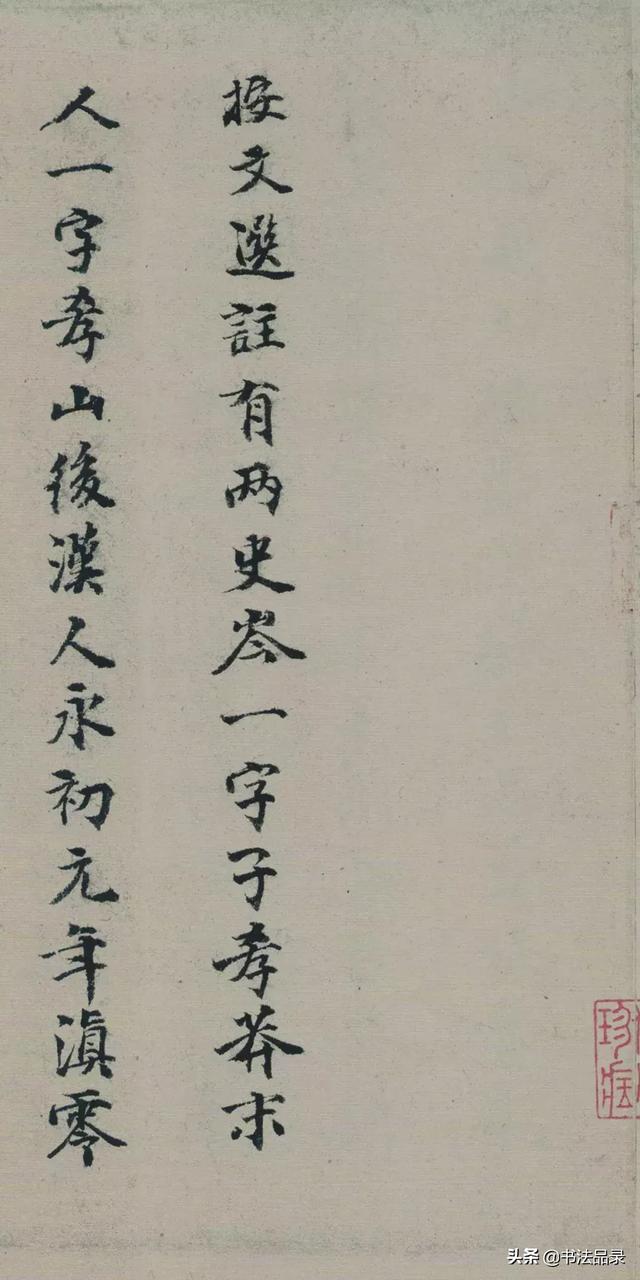 按文選註有两史岑一字子孝莽末
人一字孝山後漢人永初元年滇零
珍
头条 @书法品录